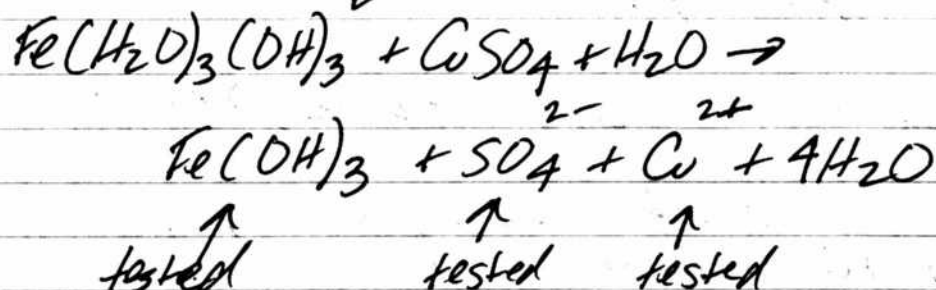 Fe(H₂O)₃(OH)₃ + CuSO₄ + H₂O →
Fe(OH)₃ + SO₄²⁻ + Cu²⁺ + 4H₂O
↑ ↑ ↑
tested tested tested